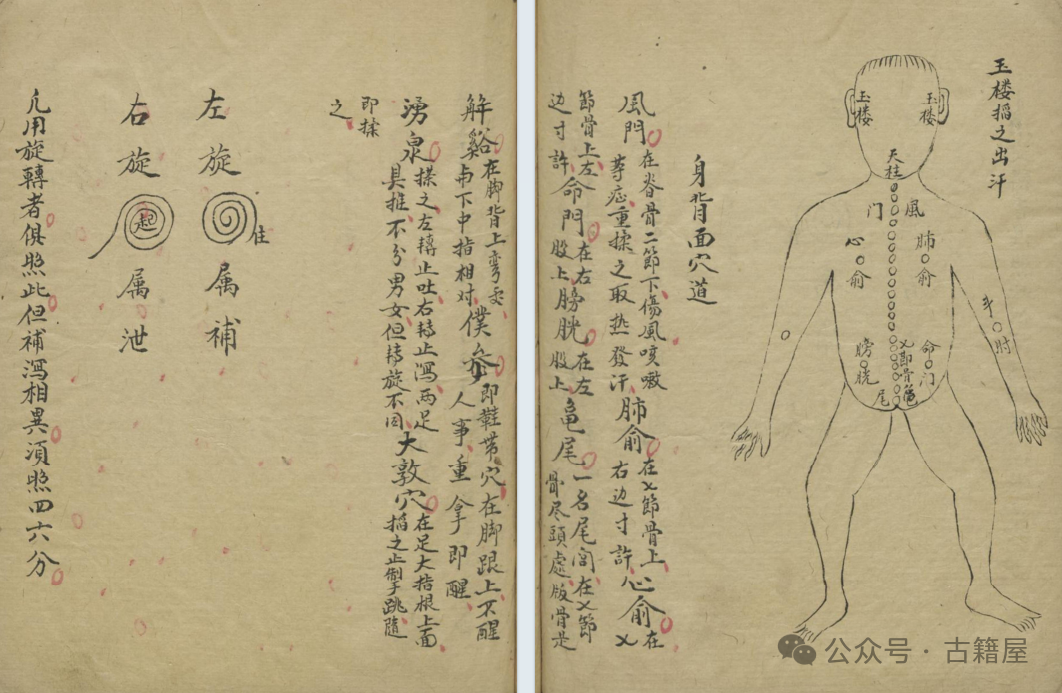 玉楼掐之出汗
玉楼
玉楼
天柱
風门
肺俞
心俞
手肘
命门
膀胱
乂節骨
龟尾
身背面穴道
風門 在脊骨二節下傷風咳嗽
等症重揉之取热發汗
肺俞 在乂節骨上
右边寸許
心俞 在乂
節骨上左
边寸許
命門 在右
股上
膀胱 在左
股上
龟尾 一名尾闾在乂節
骨尽頭處版骨是
解谿 在脚背上弯处
与下中指相对
僕參 即鞋带穴在脚跟上不醒
人事重拿即醒
湧泉 揉之左轉止吐右转止瀉两足
具推不分男女但转旋不同
大敦穴 在足大指根上面
掐之止制手跳随
即揉
之
左旋 住 属補
右旋 起 属泄
凢用旋轉者俱照此但補瀉相異須照四六分
公众号·古籍屋